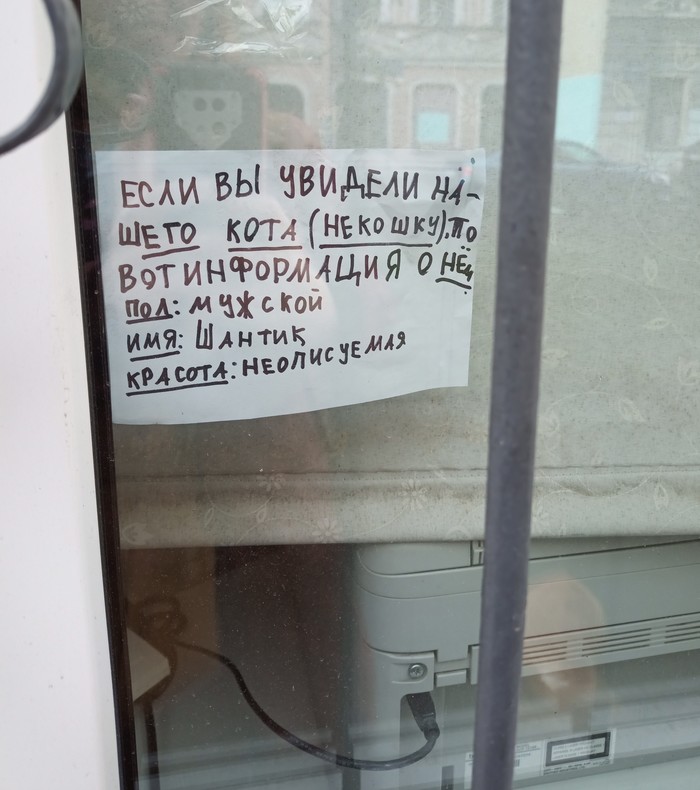 ЕСЛИ ВЫ УВИДЕЛИ НА-
ШЕГО КОТА (НЕКОШКУ).ТО
ВОТ ИНФОРМАЦИЯ О НЁМ
ПОЛ: МУЖСКОЙ
ИМЯ: ШАНТИК
КРАСОТА: НЕОПИСУЕМАЯ